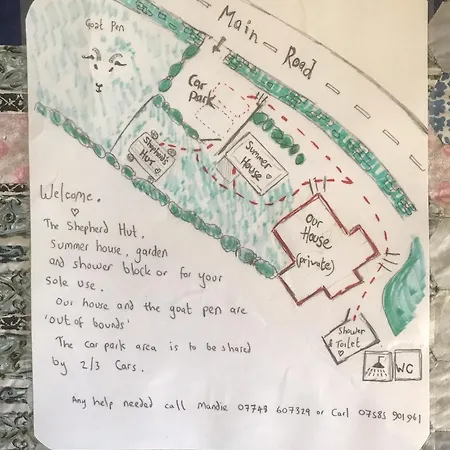 Main Road
Goat Pen
Car
park
Shepherd's
Hut
Summer
House
Our
House
(private)
Shower
& Toilet
WC
Welcome.
The Shepherd Hut.
Summer house, garden
and shower block or for your
sole use.
Our house and the goat pen are
'out of bounds'
The car park area is to be shared
by 2/3 Cars.
Any help needed call Mandie 07748 607329 or Carl 07585 901961